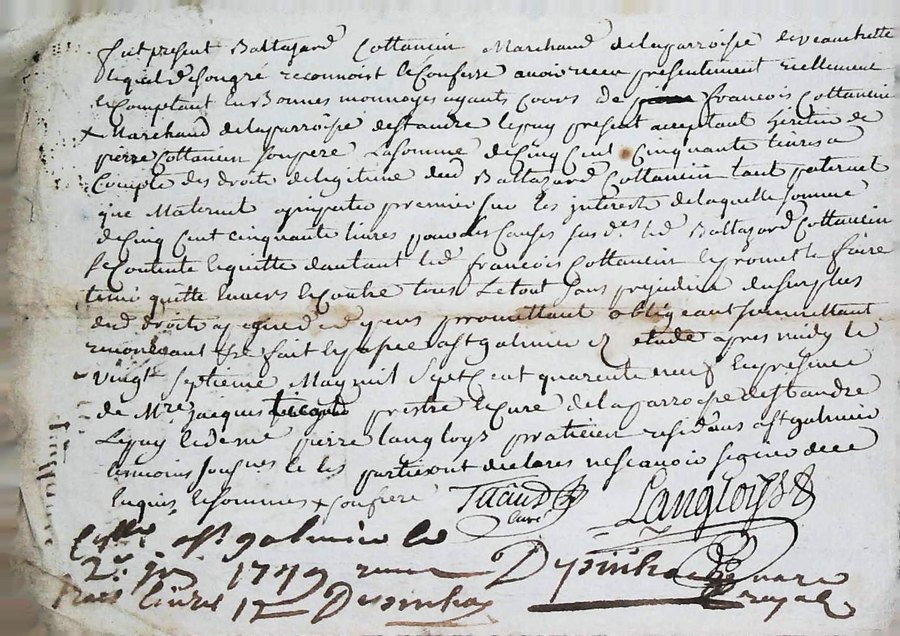 fut présent Baltazard Cottancin Marchand delaparroisse de veauchette
lequel desongré reconnoist & Confesse avoir receu présentement réellement
& Comptant en Bonnes monnoyes ayants Cours de François Cottancin
x Marchand delaparroisse destandré lepuy présent acceptant héritier de
pierre Cottancin son père Lasomme decinq Cent Cinquante livres a
Compte des droits delegitime dud Baltazard Cottancin tant paternel
que Maternel a imputer premier sur les interests delaquelle somme
decinq Cent cinquante livres pour les Causes susdes led Baltazard Cottancin
se Contente & quitte dautant led françois Cottancin & promet le faire
tenir quitte Envers & Contre tous Le tout sans préjudice du surplus
desd droits promettant obligeant soumettant
renonceant &c fait & passé a st galmier Etude après midy le
vingt septieme May mil sept Cent quarente neuf En présence
de Mre Jacques prestre & Curé delaparroisse destandré
Lepuy & de me pierre langloys praticien résidans a st galmier
témoins soussignés & les parties ont déclarés ne scavoir signer dece
Enquis & sommés x son père
curé Langloys
Collé a st galmier le
2e 1749 reçu
trois livres 12 notaire
royal